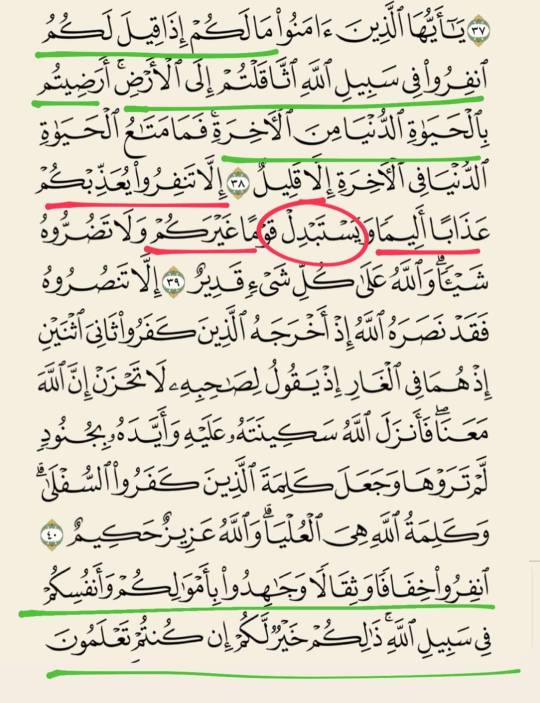 ٣٧ يَـٰٓأَيُّهَا ٱلَّذِينَ ءَامَنُوا۟ مَا لَكُمْ إِذَا قِيلَ لَكُمُ
ٱنفِرُوا۟ فِى سَبِيلِ ٱللَّهِ ٱثَّاقَلْتُمْ إِلَى ٱلْأَرْضِ ۚ أَرَضِيتُم
بِٱلْحَيَوٰةِ ٱلدُّنْيَا مِنَ ٱلْـَٔاخِرَةِ ۚ فَمَا مَتَـٰعُ ٱلْحَيَوٰةِ
ٱلدُّنْيَا فِى ٱلْـَٔاخِرَةِ إِلَّا قَلِيلٌ ٣٨ إِلَّا تَنفِرُوا۟ يُعَذِّبْكُمْ
عَذَابًا أَلِيمًا وَيَسْتَبْدِلْ قَوْمًا غَيْرَكُمْ وَلَا تَضُرُّوهُ
شَيْـًٔا ۗ وَٱللَّهُ عَلَىٰ كُلِّ شَىْءٍ قَدِيرٌ ٣٩ إِلَّا تَنصُرُوهُ
فَقَدْ نَصَرَهُ ٱللَّهُ إِذْ أَخْرَجَهُ ٱلَّذِينَ كَفَرُوا۟ ثَانِىَ ٱثْنَيْنِ
إِذْ هُمَا فِى ٱلْغَارِ إِذْ يَقُولُ لِصَـٰحِبِهِۦ لَا تَحْزَنْ إِنَّ ٱللَّهَ
مَعَنَا ۖ فَأَنزَلَ ٱللَّهُ سَكِينَتَهُۥ عَلَيْهِ وَأَيَّدَهُۥ بِجُنُودٍ
لَّمْ تَرَوْهَا وَجَعَلَ كَلِمَةَ ٱلَّذِينَ كَفَرُوا۟ ٱلسُّفْلَىٰ ۗ
وَكَلِمَةُ ٱللَّهِ هِىَ ٱلْعُلْيَا ۗ وَٱللَّهُ عَزِيزٌ حَكِيمٌ ٤٠
ٱنفِرُوا۟ خِفَافًا وَثِقَالًا وَجَـٰهِدُوا۟ بِأَمْوَٰلِكُمْ وَأَنفُسِكُمْ
فِى سَبِيلِ ٱللَّهِ ۚ ذَٰلِكُمْ خَيْرٌ لَّكُمْ إِن كُنتُمْ تَعْلَمُونَ